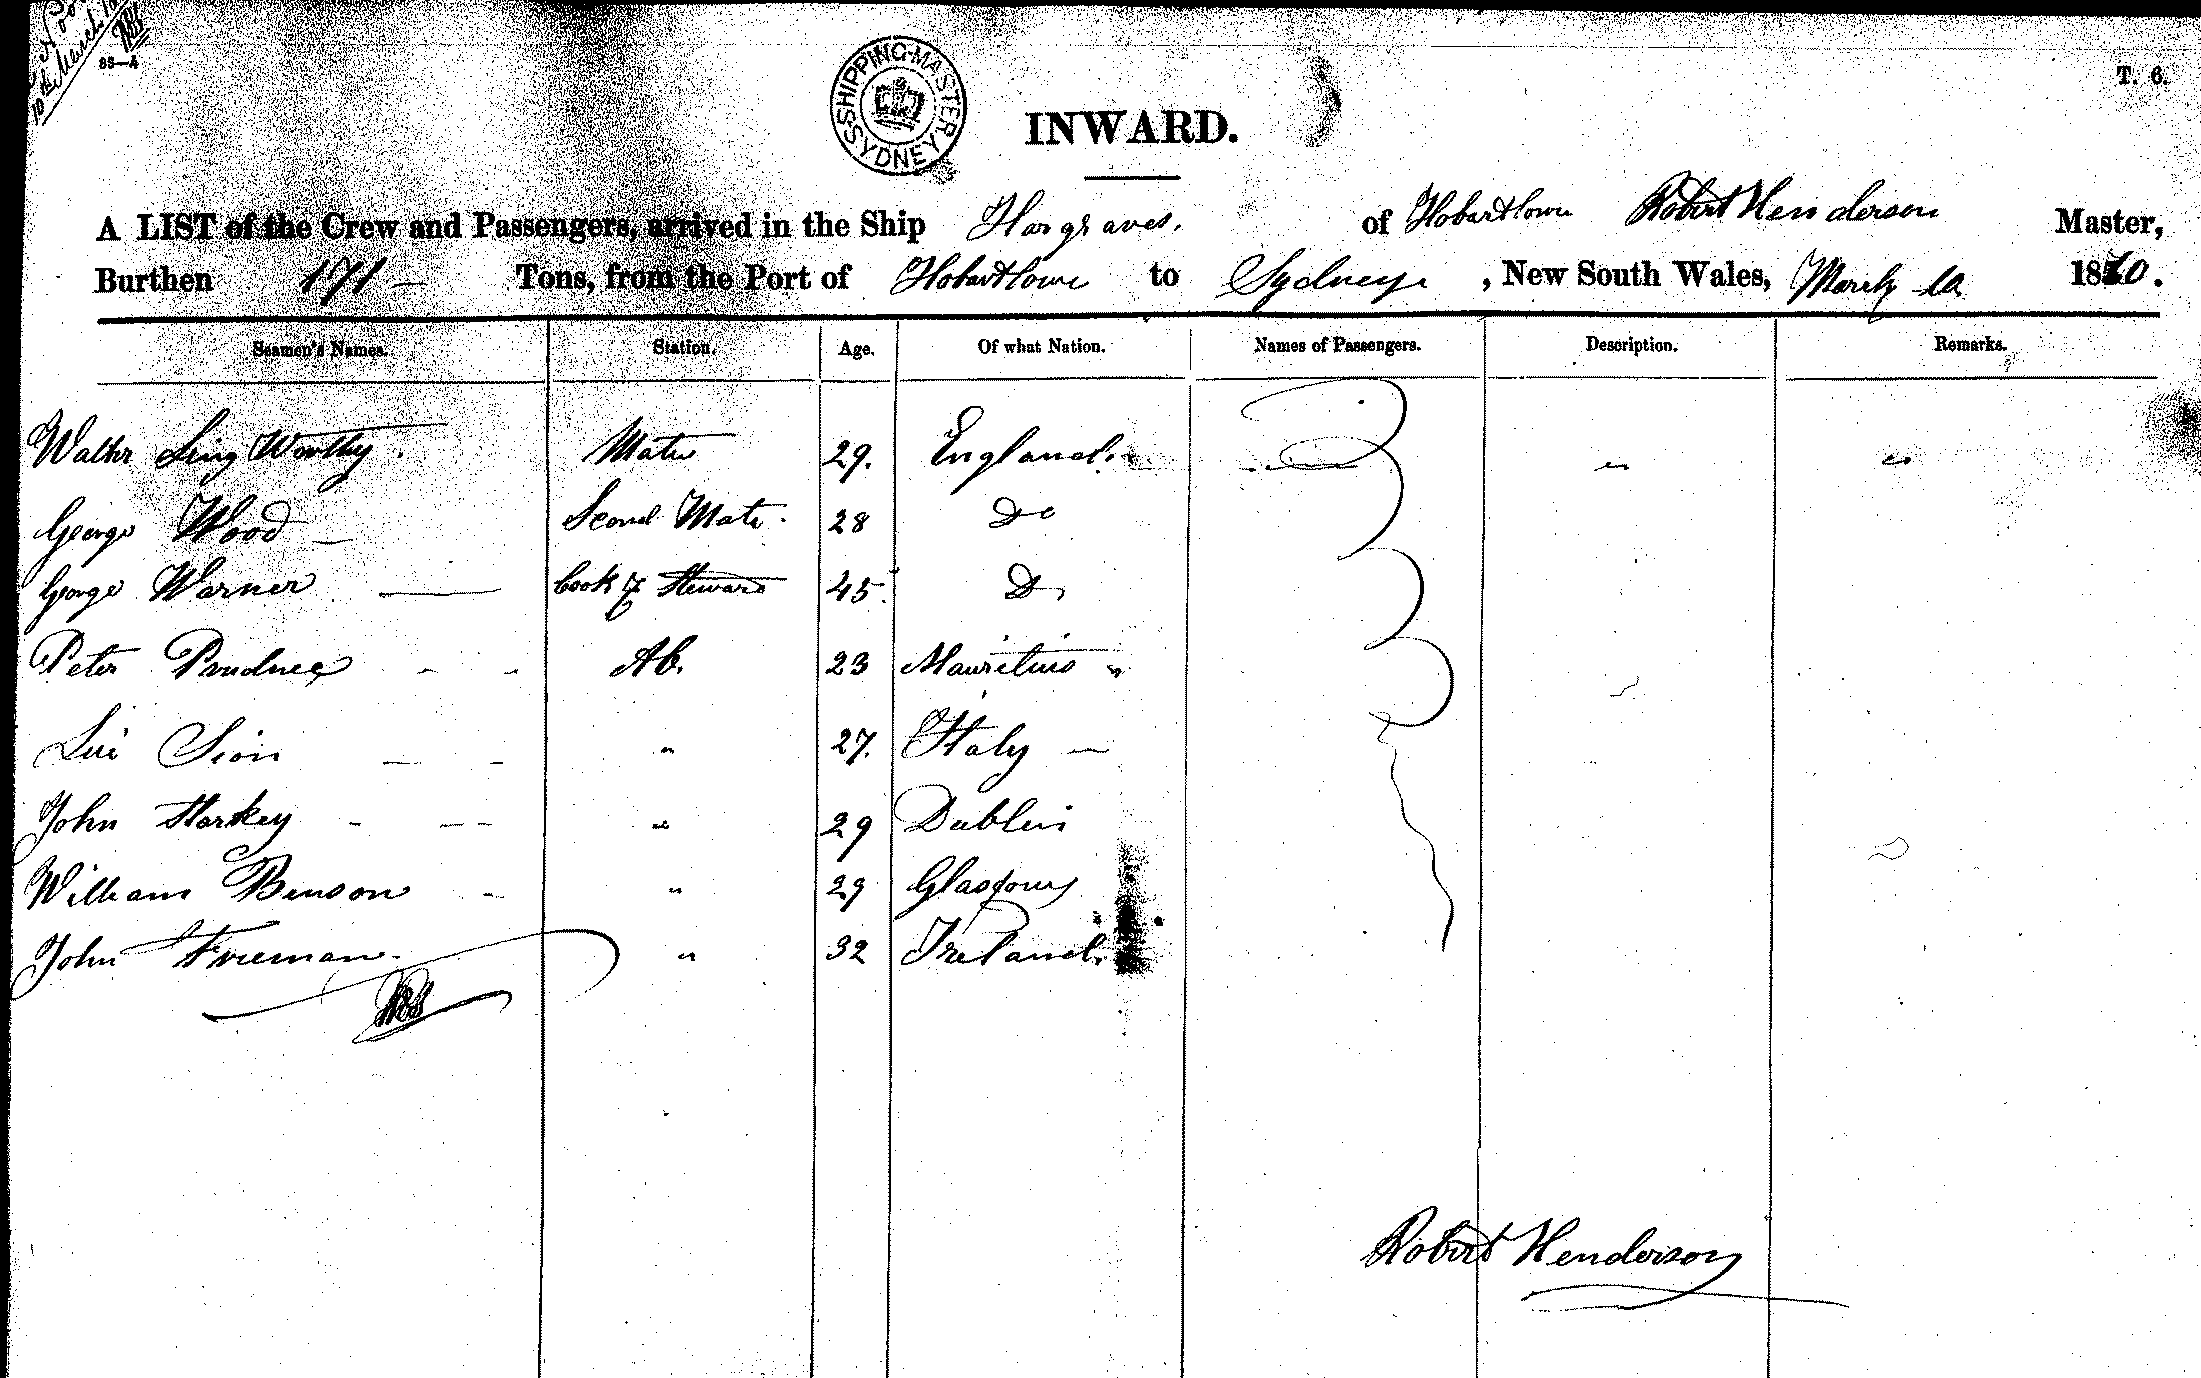 10th March
85—A
SHIPPING MASTER SYDNEY
T. 6.
INWARD.
A LIST of the Crew and Passengers, arrived in the Ship Hargraves. of Hobart Town Robert Henderson Master,
Burthen 171 — Tons, from the Port of Hobart Town to Sydney , New South Wales, March 10 1870.
Seamen's Names. Station. Age. Of what Nation. Names of Passengers. Description. Remarks.
Walter Ling Worthy. Mate 29. England.
George Wood — Second Mate. 28 Do
George Warner — Cook & Steward 45. Do
Peter - - Ab. 23 Mauritius "
Lui Sion — - " 27. Italy —
John Starkey - -- " 29 Dublin
William Benson - " 29 Glasgow
John Freeman. " 32 Ireland.
Robert Henderson